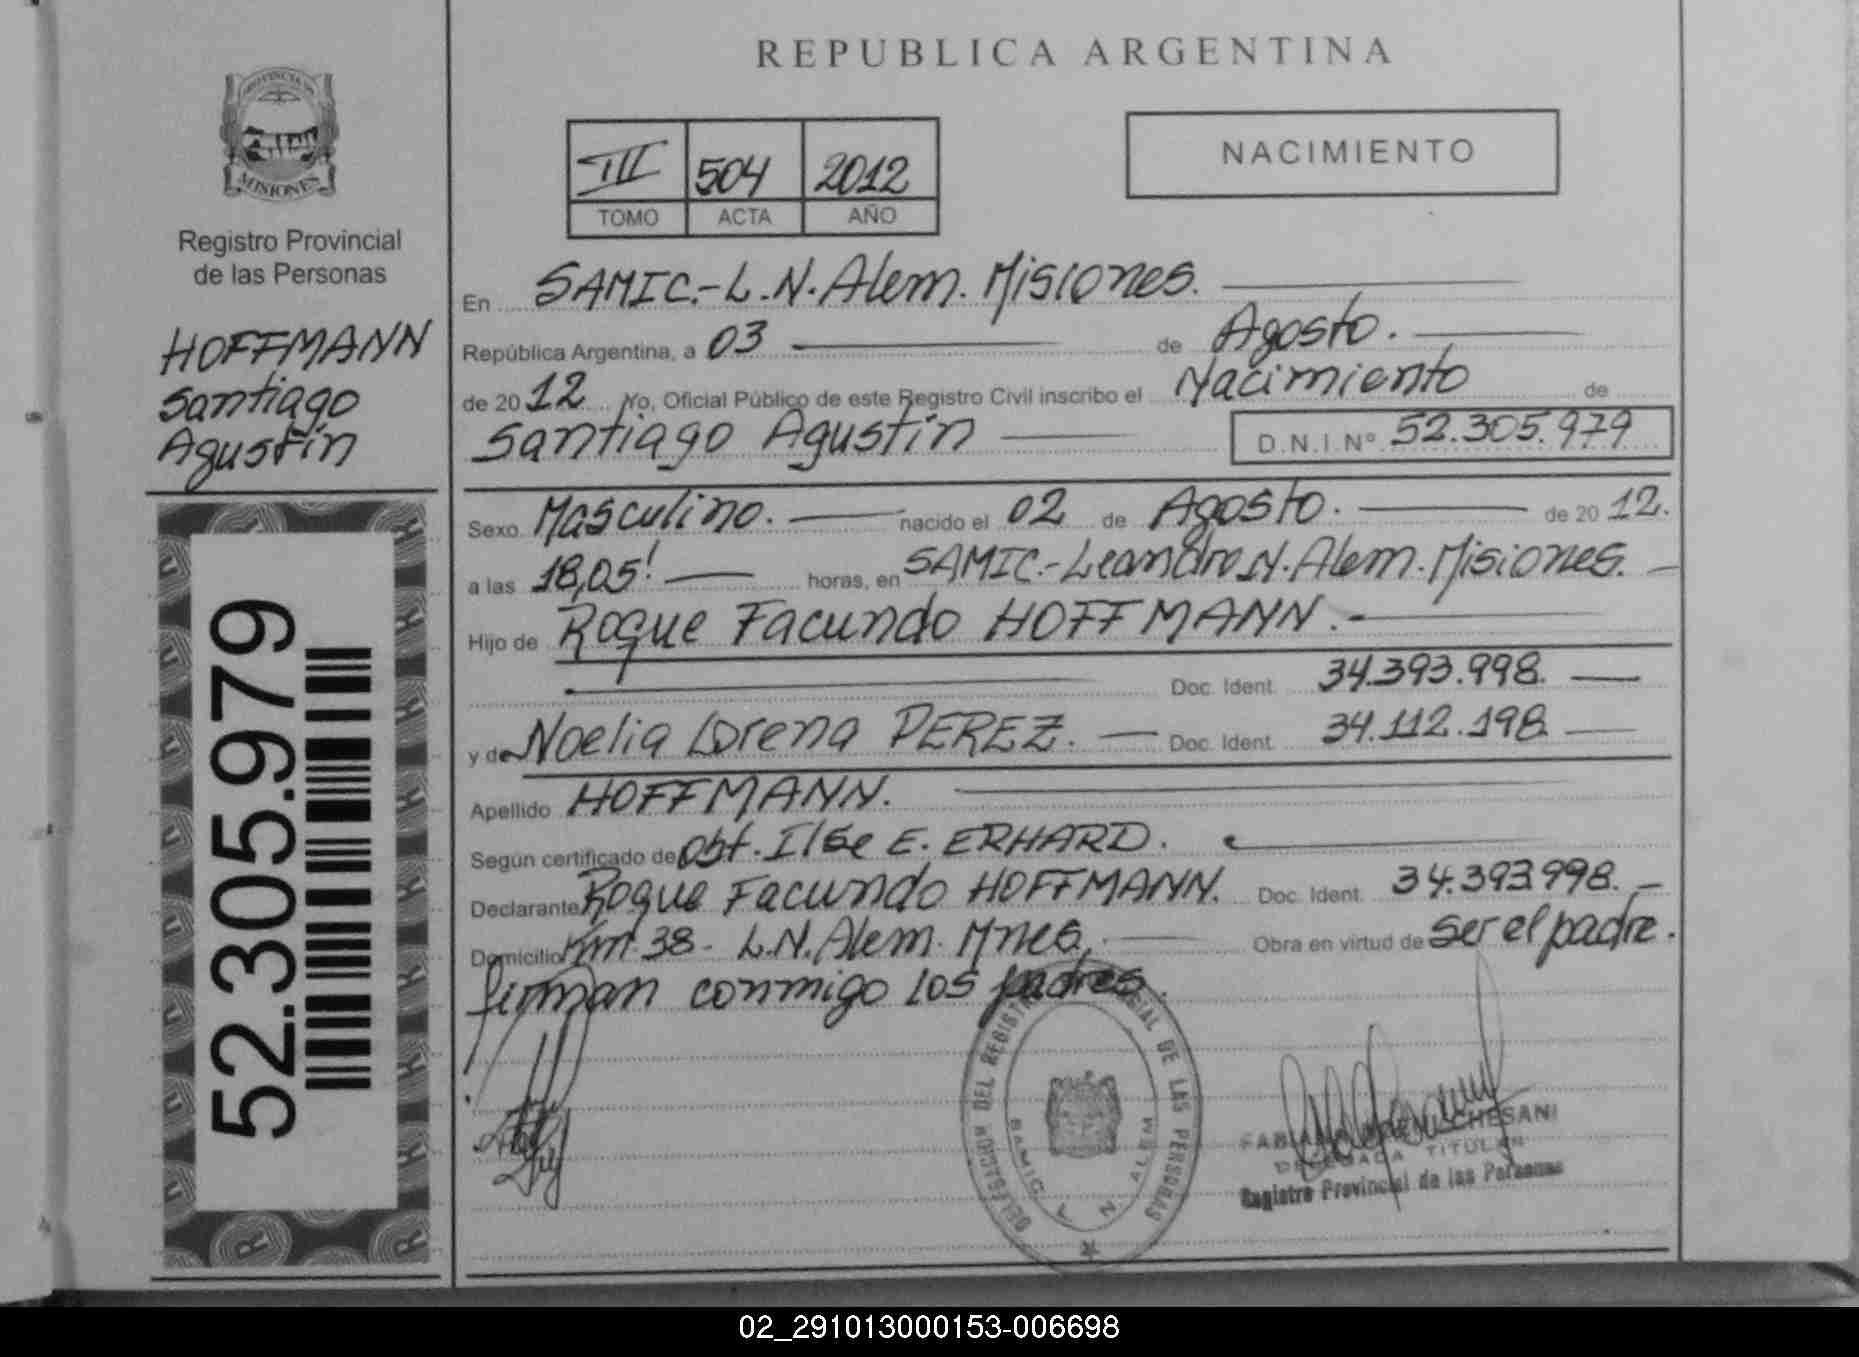 REPUBLICA ARGENTINA
PROVINCIA DE
MISIONES
Registro Provincial
de las Personas
HOFFMANN
Santiago
Agustín
52.305.979
III 504 2012
TOMO ACTA AÑO
NACIMIENTO
En SAMIC.-L.N.Alem. Misiones.
República Argentina, a 03 de Agosto.
de 2012 Yo, Oficial Público de este Registro Civil inscribo el Nacimiento de
Santiago Agustín D.N.I.Nº 52.305.979
Sexo Masculino. nacido el 02 de Agosto. de 2012.
a las 18,05' horas, en SAMIC.-Leandro N.Alem.Misiones.
Hijo de Roque Facundo HOFFMANN.
Doc. Ident. 34.393.998.
y de Noelia Lorena PEREZ. Doc. Ident. 34.112.198
Apellido HOFFMANN.
Según certificado de Obst. Ilse E. ERHARD.
Declarante Roque Facundo HOFFMANN. Doc. Ident. 34.393.998.
Domicilio Km. 38- L.N.Alem. Mnes. Obra en virtud de ser el padre.
firman conmigo los padres.
DELEGACION DEL REGISTRO PROVINCIAL DE LAS PERSONAS
SAMIC L. N. ALEM
DELEGADA TITULAR
Registro Provincial de las Personas
02_291013000153-006698